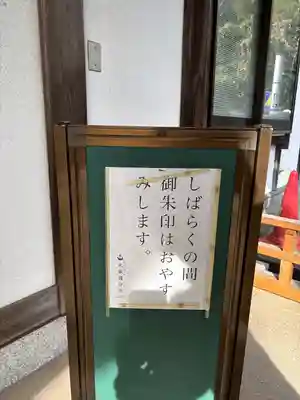 しばらくの間
御朱印はおやす
みします。